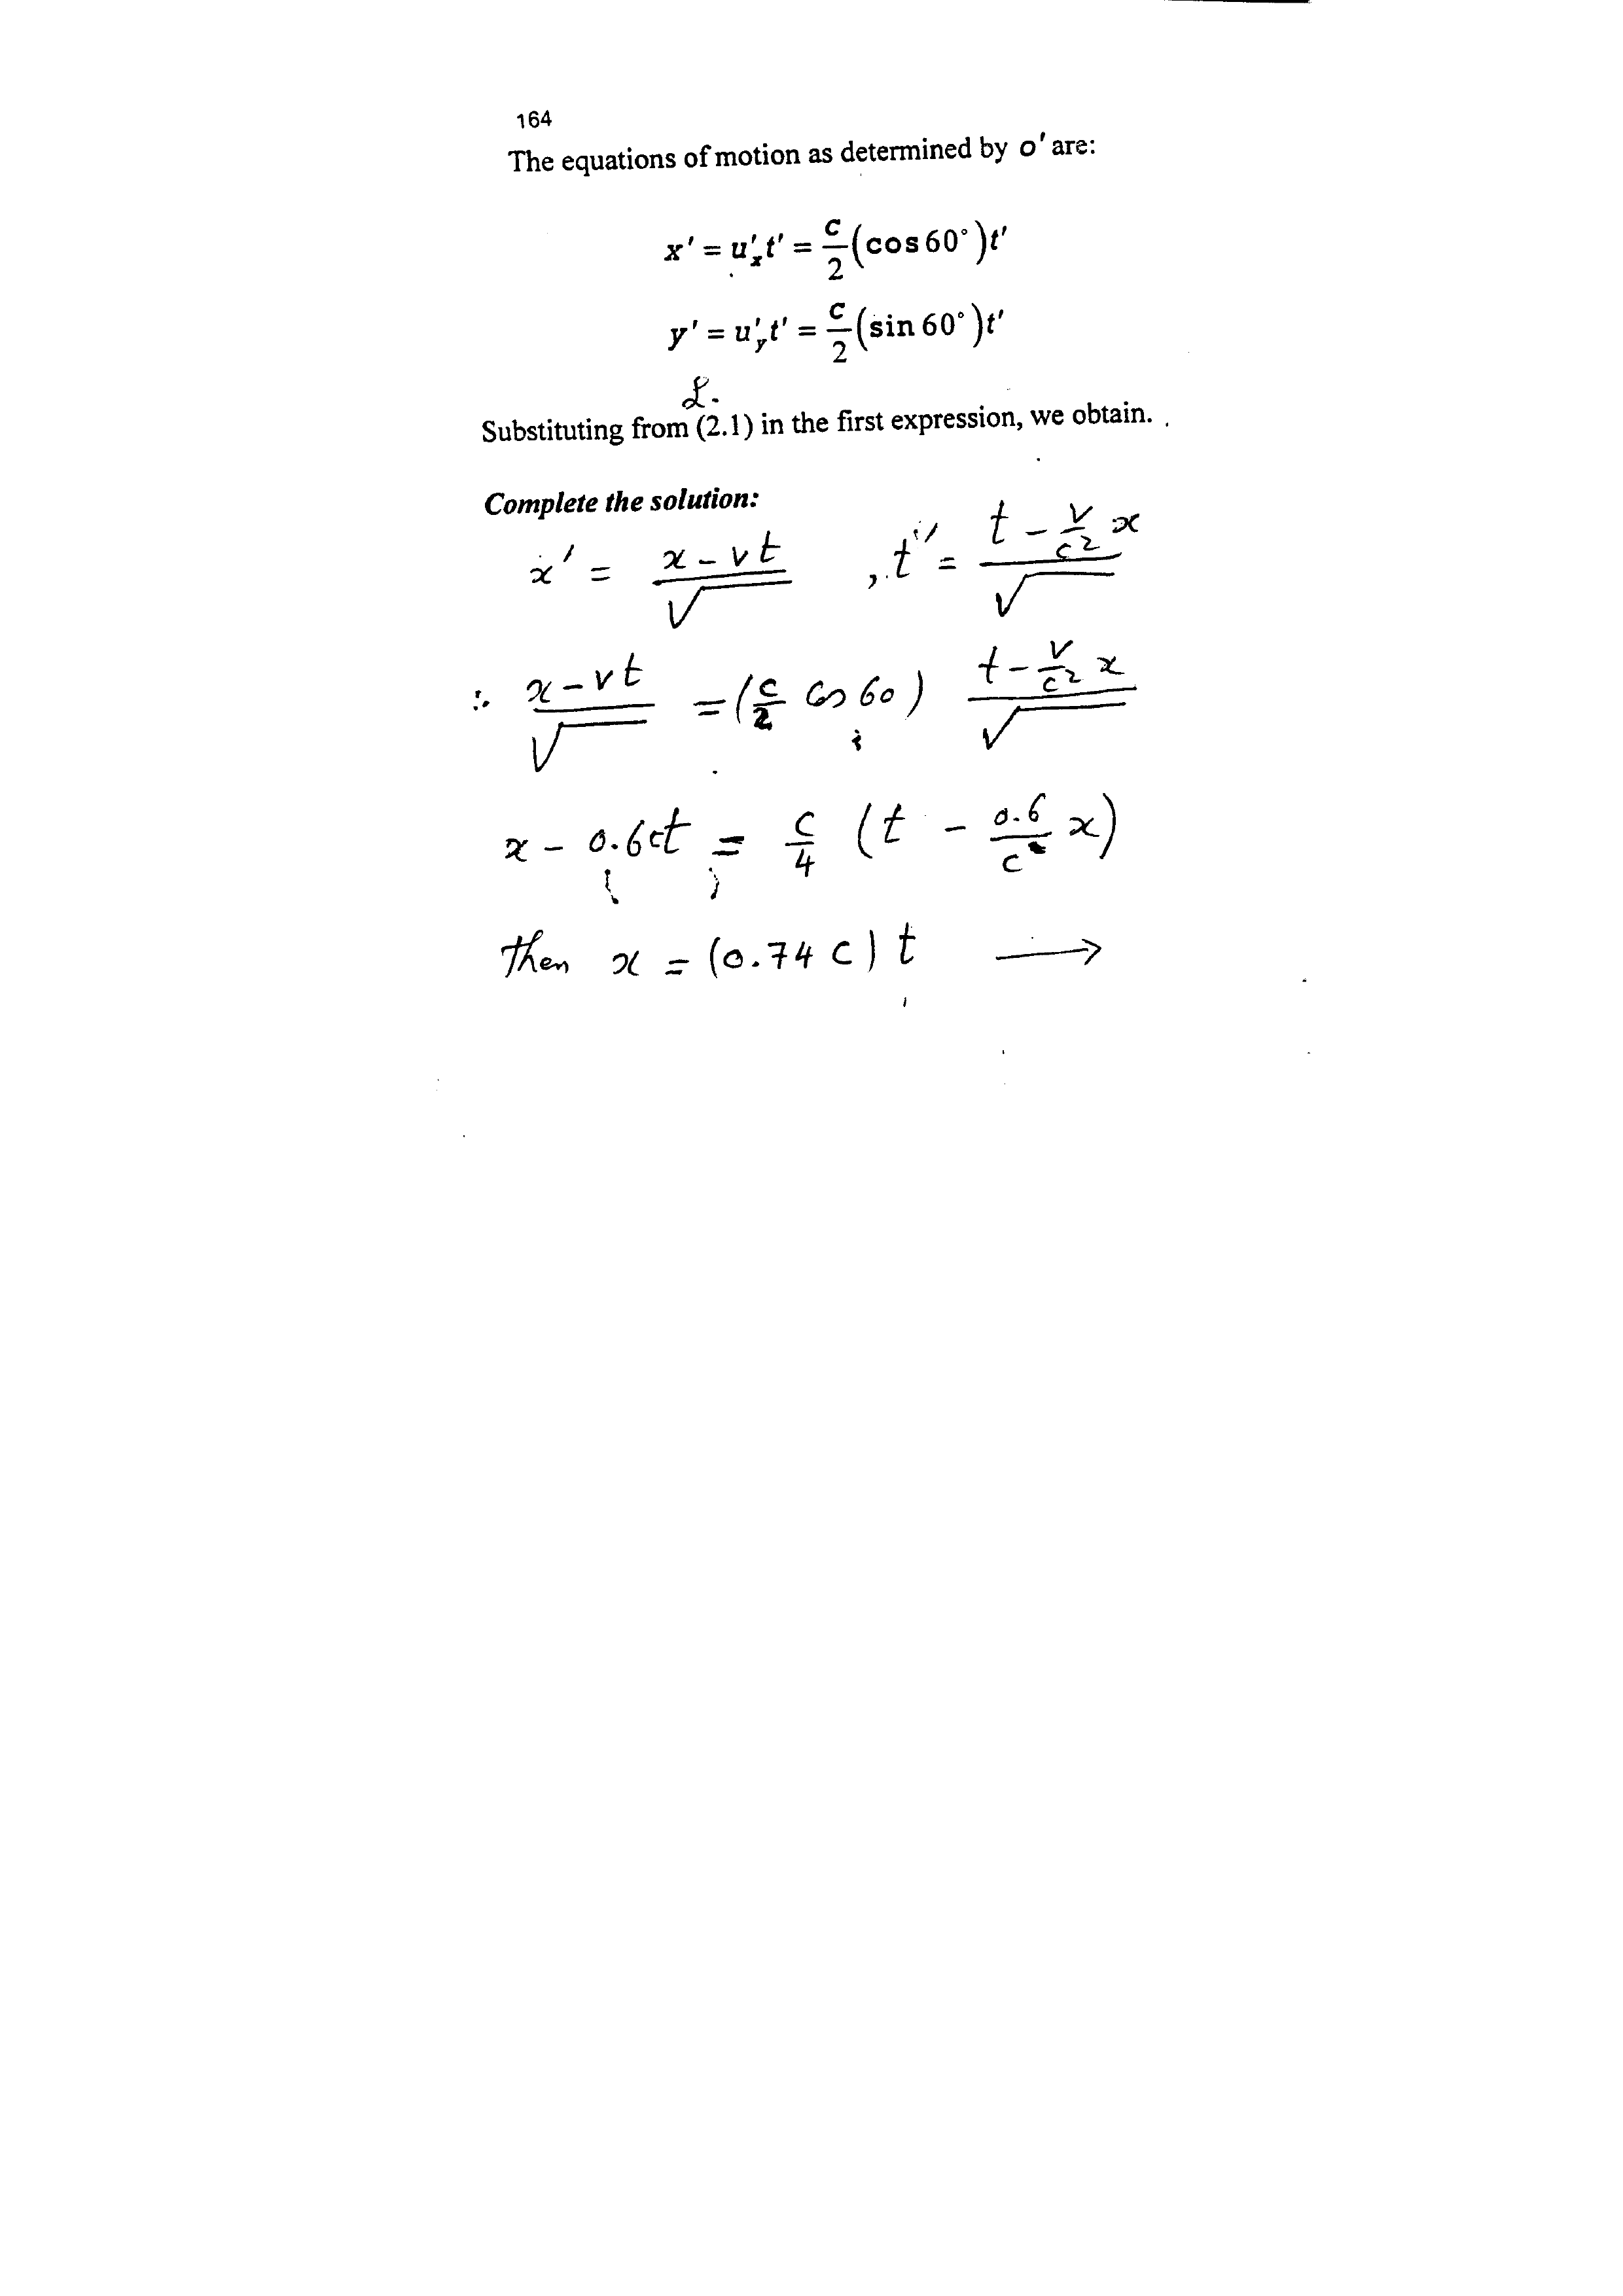 164
The equations of motion as determined by o' are:
x' = u'ₓt' = c/2 (cos 60°)t'
y' = u'ᵧt' = c/2 (sin 60°)t'
L.
Substituting from (2.1) in the first expression, we obtain.
Complete the solution:
x' = (x - vt)/√ , t' = (t - v/c² x)/√
∴ (x - vt)/√ = (c/2 cos 60) (t - v/c² x)/√
x - 0.6ct = c/4 (t - 0.6/c x)
Then x = (0.74 c) t →